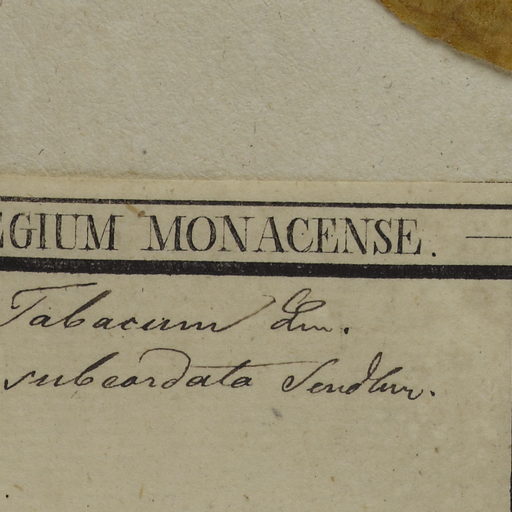 EGIUM MONACENSE.
Tabacum Lin.
subcordata Sendtner.